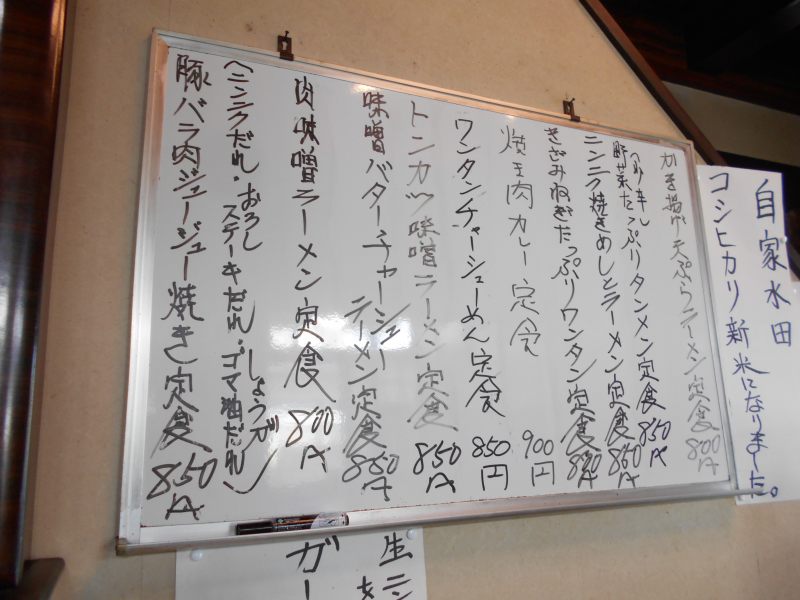 自家水田
コシヒカリ新米になりました。
かき揚げ天ぷらラーメン定食 800円
野菜たっぷりタンメン定食 850円
ニンニク焼きめしとラーメン定食 850円
きざみねぎたっぷりワンタン定食
焼肉カレー定食 900円
ワンタンチャーシューめん定食 850円
トンカツ味噌ラーメン定食 850円
味噌バターチャーシュー
ラーメン定食 850円
肉味噌ラーメン定食 800円
(ニンニクだれ・おろし しょうが
ステーキだれ・ゴマ油だれ)
豚バラ肉ジュージュー焼き定食 850円
生ニン
ガー